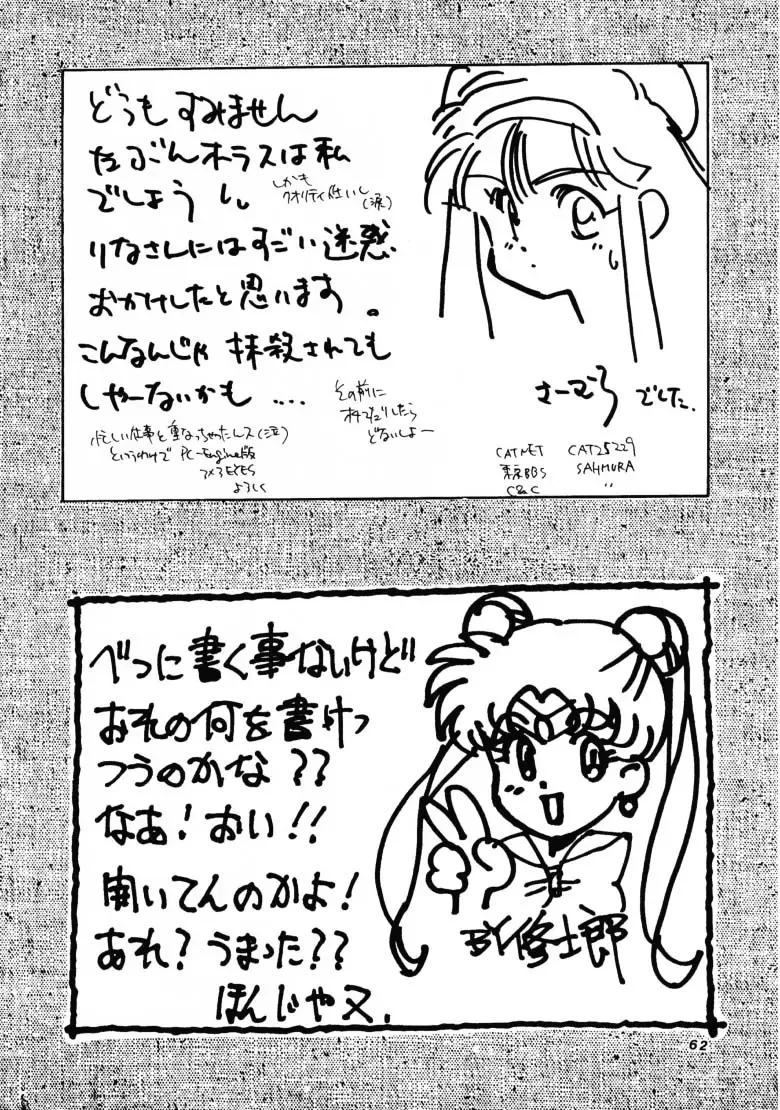 どうもすみません
たぶんホラスは私
でしょう
しかも
クオリティ低いし
(涙)
りなさんにはすごい迷惑
おかけしたと思います。
こんなんじゃ抹殺されても
しゃーないかも ....
その前に
どないしよー
忙しい仕事と重なっちゃったんス(泣)
というわけで PC-Engine版
3×3EYES
よろしく
さーむら でした.
CATNET CAT25229
東京BBS SAHMURA
C&C 〃
べつに書く事ないけど
おれの何を書けっ
つうのかな??
なあ!おい!!
聞いてんのかよ!
あれ?うまった??
ほんじゃ又.
BY修士郎
62